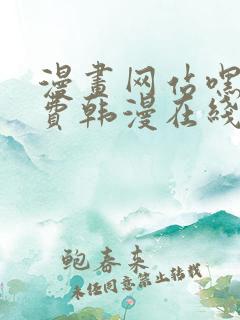 漫畫网站嘿
費韩漫在綫
鲍春来
未经同意禁止转载